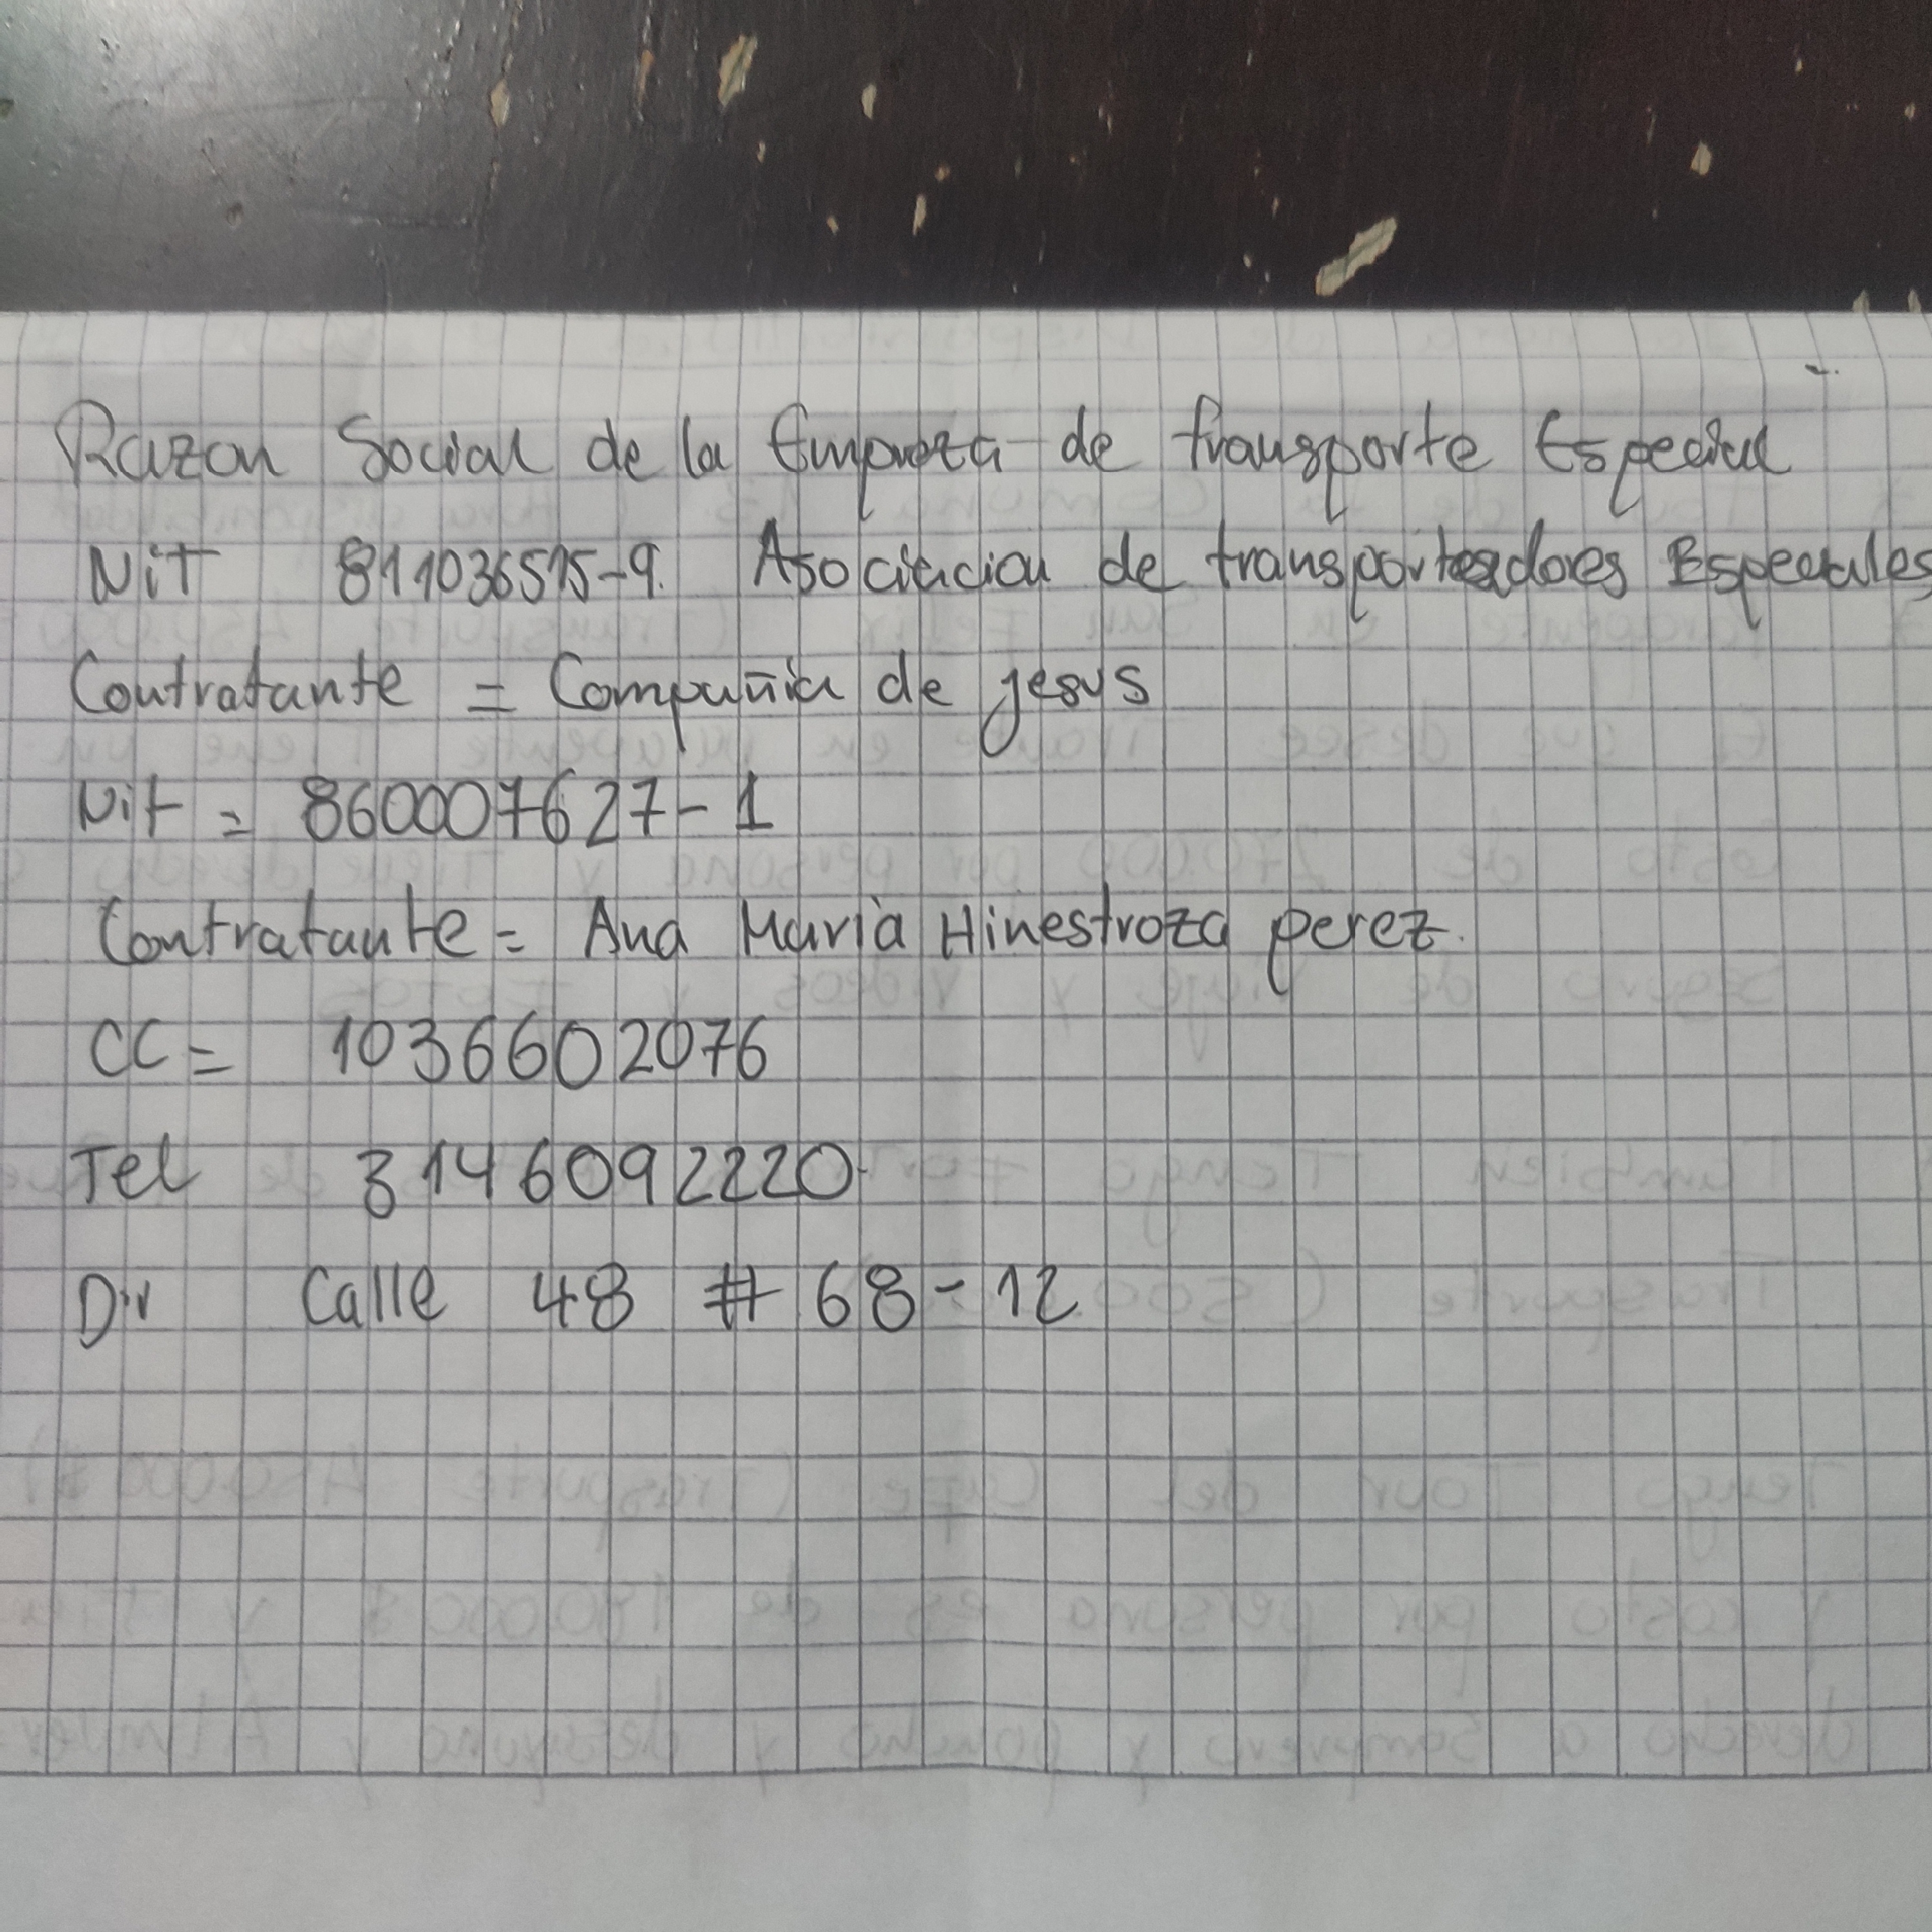 Razon Social de la Empreza de transporte Especial
Nit 811036515-9. Asociacion de transportadores Especiales
Contratante = Compañia de jesus
Nit = 860007627-1
Contratante = Ana Maria Hinestroza perez.
CC = 1036602076
Tel 3146092220
Dir Calle 48 # 68-12